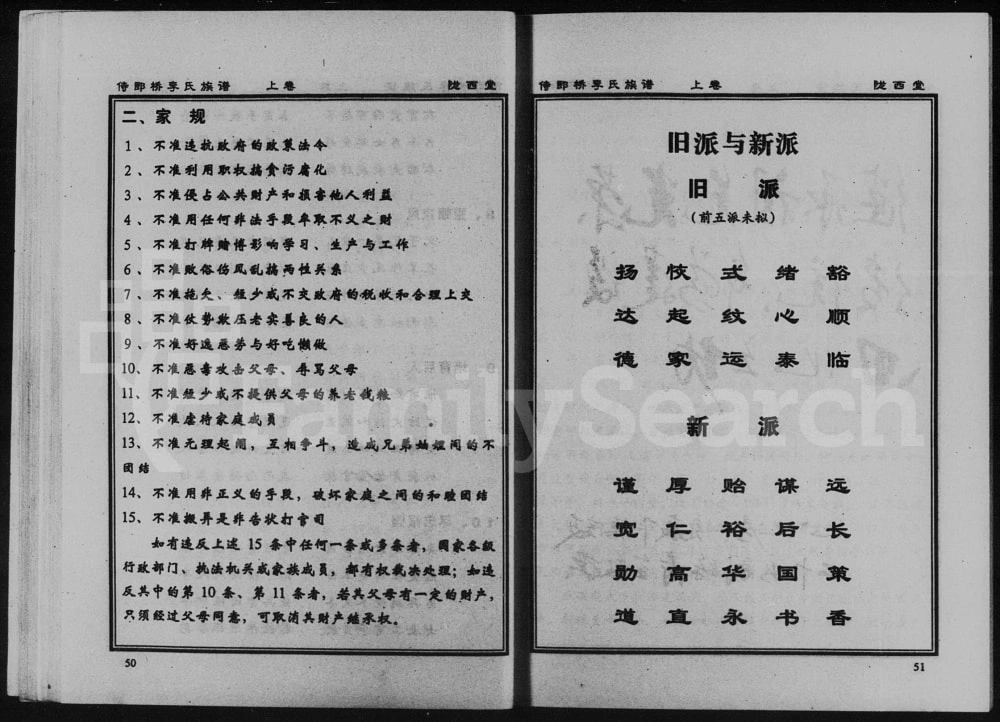 侍郎桥李氏族谱 上卷 陇西堂
二、家 规
1、不准违抗政府的政策法令
2、不准利用职权搞贪污腐化
3、不准侵占公共财产和损害他人利益
4、不准用任何非法手段牟取不义之财
5、不准打牌赌博影响学习、生产与工作
6、不准败俗伤风乱搞两性关系
7、不准拖欠、短少或不交政府的税收和合理上交
8、不准仗势欺压老实善良的人
9、不准好逸恶劳与好吃懒做
10、不准恶毒攻击父母、辱骂父母
11、不准短少或不提供父母的养老钱粮
12、不准虐待家庭成员
13、不准无理起闹，互相争斗，造成兄弟妯娌间的不
团结
14、不准用非正义的手段，破坏家庭之间的和睦团结
15、不准搬弄是非告状打官司
如有违反上述 15 条中任何一条或多条者，国家各级
行政部门、执法机关或家族成员，都有权裁决处理；如违
反其中的第 10 条、第 11 条者，若其父母有一定的财产，
只须经过父母同意，可取消其财产继承权。
50
侍郎桥李氏族谱 上卷 陇西堂
旧派与新派
旧 派
（前五派未拟）
扬 恢 式 绪 豁
达 起 纹 心 顺
德 家 运 泰 临
新 派
谨 厚 贻 谋 远
宽 仁 裕 后 长
勋 高 华 国 策
道 直 永 书 香
51
FamilySearch